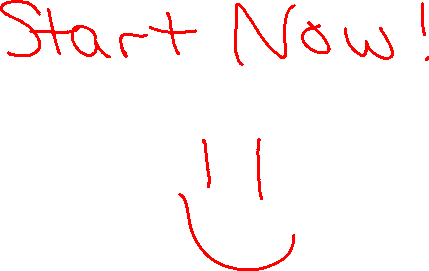 Start Now!